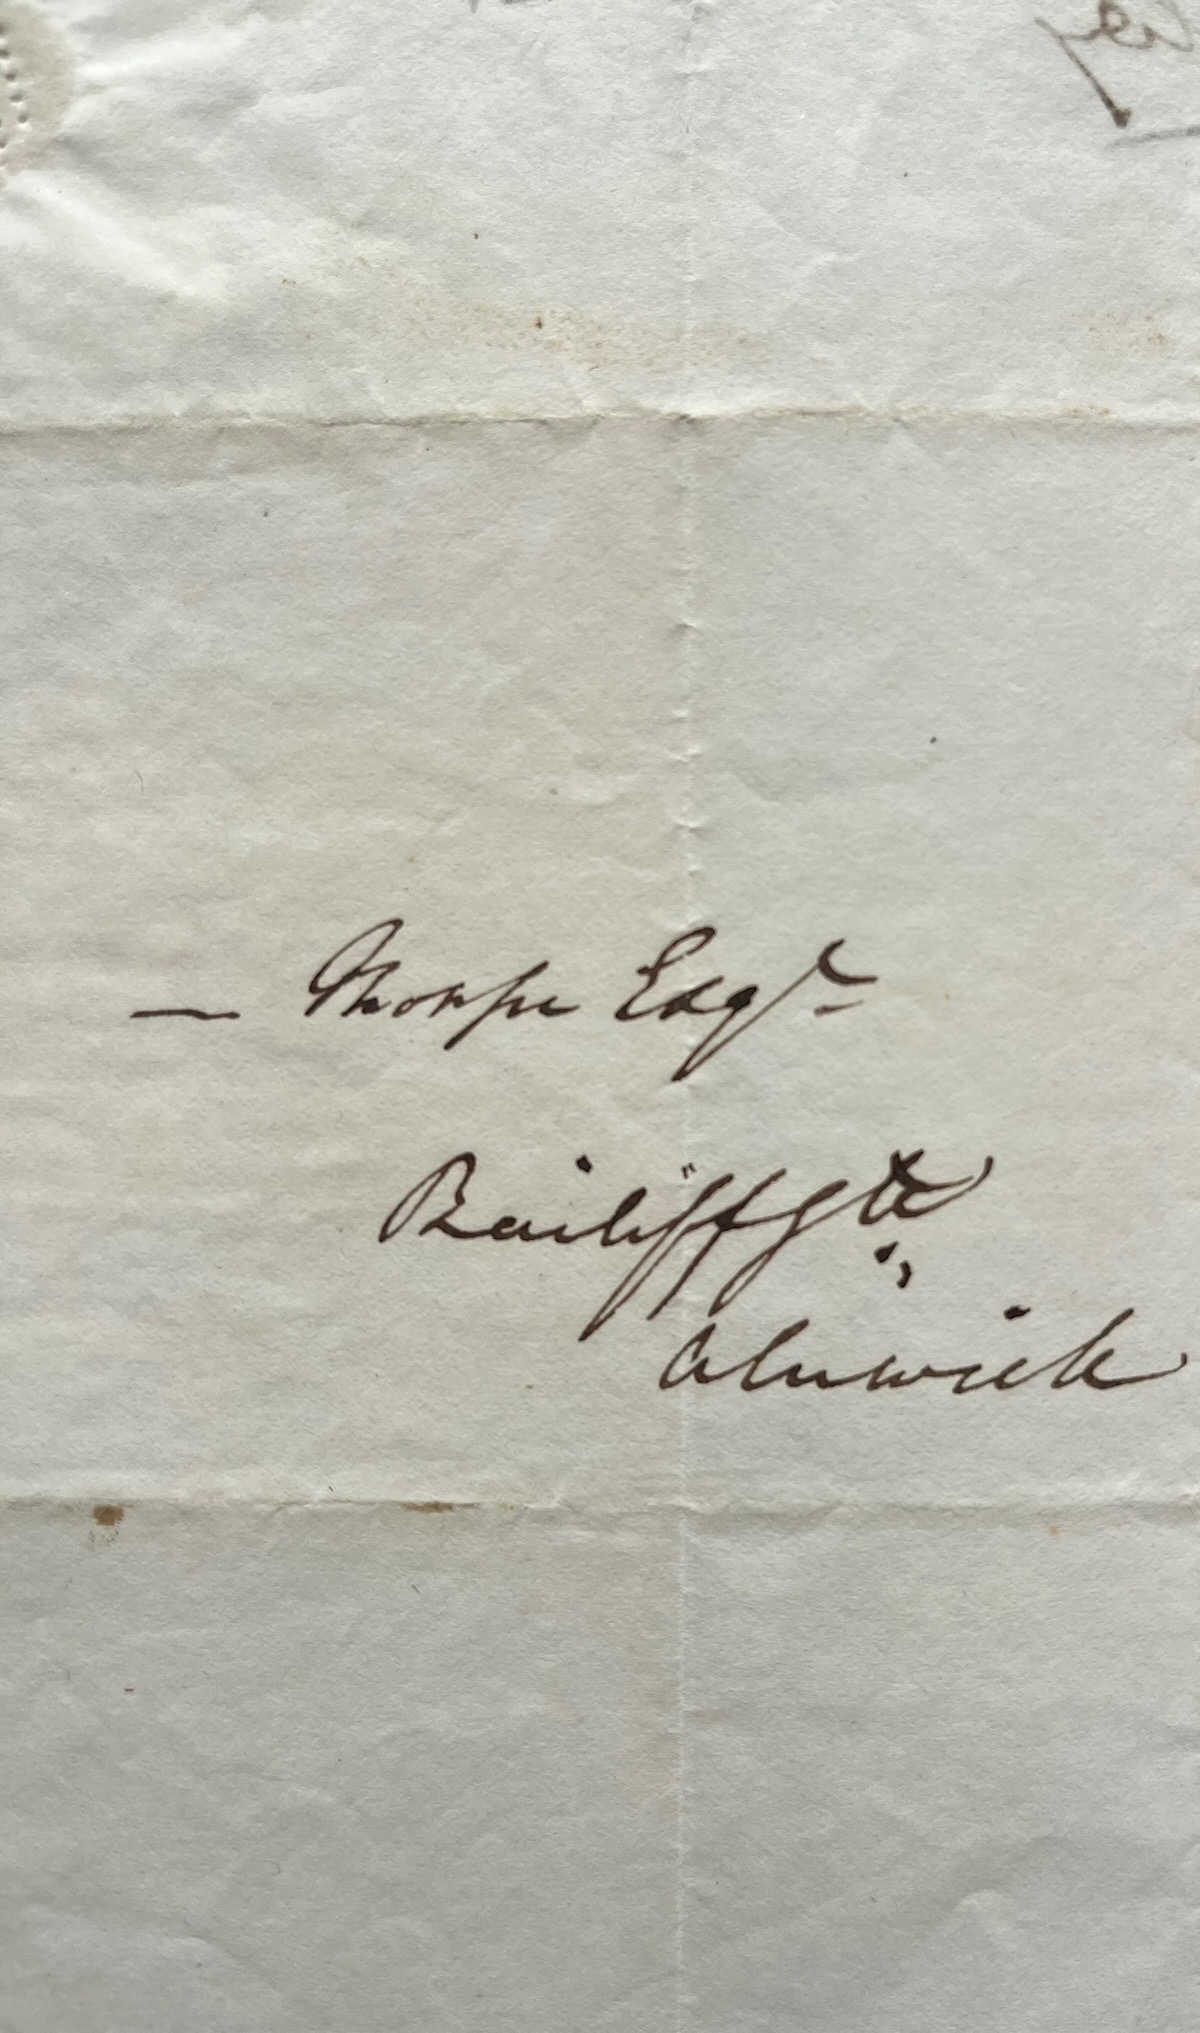 — Thorpe Esqr
Bailiffgte
Alnwick